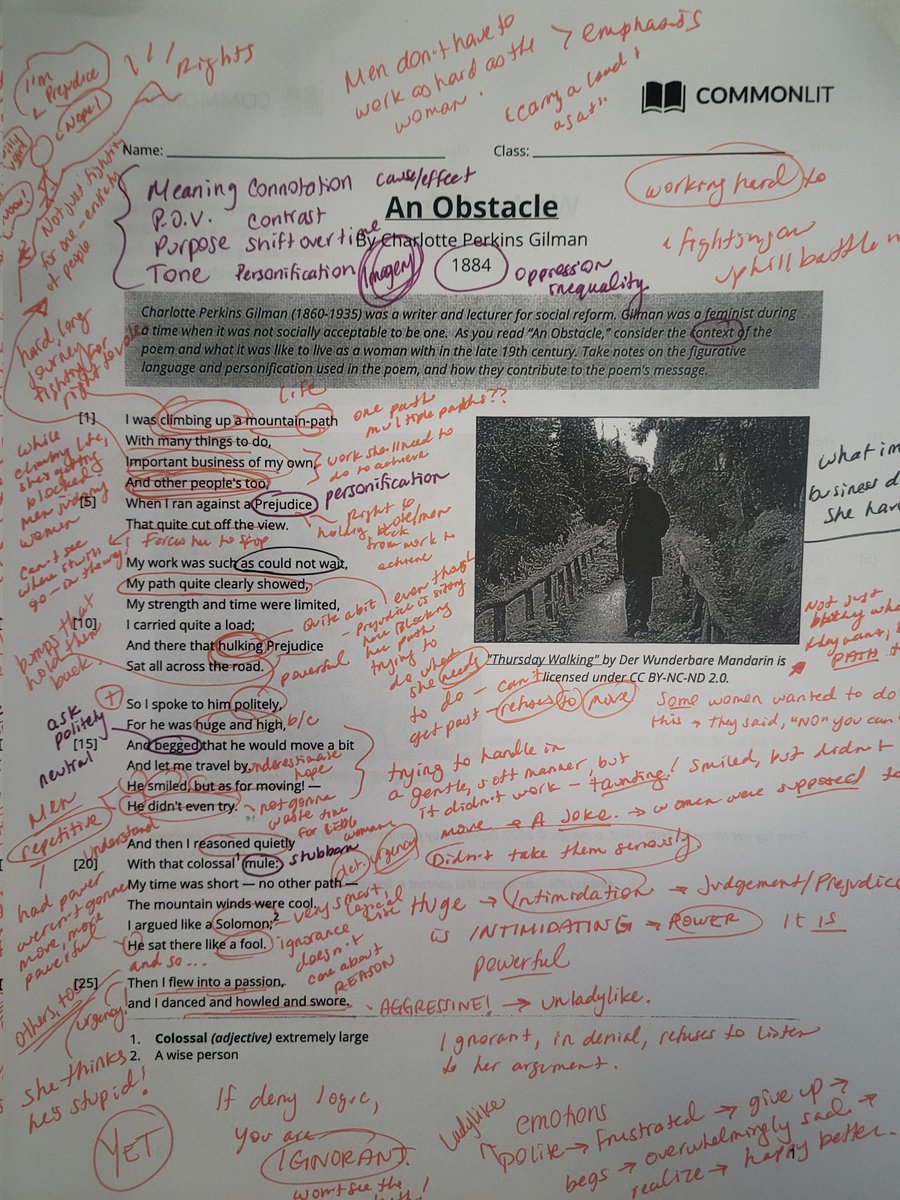 "I'm Prejudice
Nope!
Rights
Men don't have to
work as hard as the > emphasis
woman.
"carry a load"
COMMONLIT
Name:
Class:
working hard
Not just fighting
for one - entirety
of people
Meaning Connotation cause/effect
P.O.V. Contrast
Purpose shift over time
Tone Personification Imagery
An Obstacle
By Charlotte Perkins Gilman
1884
oppression
inequality
"fighting an
uphill battle
Charlotte Perkins Gilman (1860-1935) was a writer and lecturer for social reform. Gilman was a feminist during
a time when it was not socially acceptable to be one. As you read “An Obstacle,” consider the context of the
poem and what it was like to live as a woman with in the late 19th century. Take notes on the figurative
language and personification used in the poem, and how they contribute to the poem’s message.
hard, long
journey
fighting for
right
Life
one path
multiple paths??
[1] I was climbing up a mountain-path
With many things to do,
Important business of my own,
And other people's too,
[5] When I ran against a Prejudice
That quite cut off the view.
work she'll need to
do to achieve
personification
Right to
holding back
from work to
achieve
while
climbing life,
she's getting
blocked
Men judging
women
Forces her to stop
can't see
My work was such as could not wait,
My path quite clearly showed,
My strength and time were limited,
[10] I carried quite a load;
And there that hulking Prejudice
Sat all across the road.
Quite a bit
powerful
even though
Prejudice is sitting
here Blocking
her path
trying to
do what
she needs
to do - can't
get past - refuses to move
bumps that
hold them
back
what im
business d
she hav
Not just
PATH
"Thursday Walking" by Der Wunderbare Mandarin is
licensed under CC BY-NC-ND 2.0.
Some women wanted to do
this → they said, "NO" you can
+
So I spoke to him politely,
For he was huge and high,
[15] And begged that he would move a bit
And let me travel by.
He smiled, but as for moving! —
He didn't even try.
b/c
ask
politely
neutral
underestimate
hope
not gonna
waste time
for little
woman
trying to handle in
a gentle, soft manner, but
it didn't work - taunting! Smiled, but didn't
move → A Joke. → women were supposed to
Didn't take them seriously
Men
repetitive
had power
weren't gonna
move, more
powerful
understand
And then I reasoned quietly
[20] With that colossal mule:
My time was short — no other path —
The mountain winds were cool.
I argued like a Solomon;2
He sat there like a fool.
stubborn
urgency
very smart,
logical
ignorance
doesn't
care about
REASON
Huge → Intimidation → Judgement/Prejudice
is INTIMIDATING → POWER It is
powerful
and so...
[25] Then I flew into a passion,
and I danced and howled and swore.
AGGRESSINE! → unladylike.
others, too
urgency!
she thinks
he's stupid!
1. Colossal (adjective) extremely large
2. A wise person
Ignorant, in denial, refuses to listen
to her argument.
YET
If deny logic,
you are
IGNORANT.
won't see the
ladylike
emotions
polite → frustrated → give up →
begs → overwhelmingly sad →
realize → happy better.
1